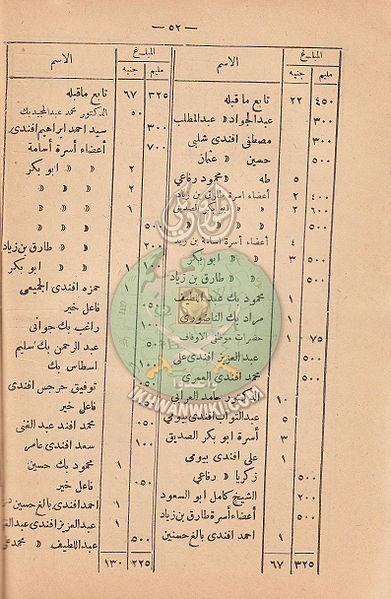 — ٥٢ —
المبلغ الاسم
مليم جنيه
٤٥٠ ٢٢ تابع ماقبله
٣٠٠ عبدالجواد » عبدالمطلب
٣٠٠ مصطفى افندى شلبى
٥٠٠ حسين » عثمان
٥ طه » محمود رفاعى
٤٠٠ ٢ أعضاء اسرة طارق بن زياد
٦٠٠ ٢ » » ابو بكر الصديق
٤ أعضاء أسرة اسامة بن زيد
٥٠٠ ٣ » » ابو بكر
٥٠٠ » » طارق بن زياد
١ محمود بك عبداللطيف
١ مراد بك
٠٧٥ ١ حضرات موظفى الاوقاف
٥٠٠ عبدالعزيز افندى على
٥٠٠ محمد افندى العمرى
١٠ الدكتور حامد
٥ عبدالتواب افندى بيومى
٣ أسرة أبو بكر الصديق
١ على افندى بيومى
٥٠٠ زكريا » رفاعى
٢٠٠ الشيخ كامل ابو السعود
٥٠٠ أعضاء أسرة طارق بن زياد
١ احمد افندى بالغ حسنين
٣٢٥ ٦٧
المبلغ الاسم
مليم جنيه
٣٢٥ ٦٧ تابع ماقبله
٥٠ الدكتور محمد عبدالمجيد بك
٣٠٠ سيد احمد ابراهيم افندى
٧٠٠ أعضاء أسرة أسامة
٢ » » ابو بكر
٢ » » »
١ » » »
» » »
٢٠٠ » » طارق بن زياد
١٠٠ ١ » » ابو بكر
١ حمزه افندى الجميعى
فاعل خير
راغب بك جوانى
عبد الرحمن بك سليم
اسطاس بك
توفيق جرجس افندى
فاعل خير
محمد افند عبد الغنى
١٠٠ سعد افندى عامر
١ محمود بك حسين
٠٥٠ فاعل خير
١ احمد افندى بالغ حسين
١ عبد العزيز افندى
٥٠٠ عبد اللطيف »
٢٢٥ ١٣٠
IKHWANWIKI.COM